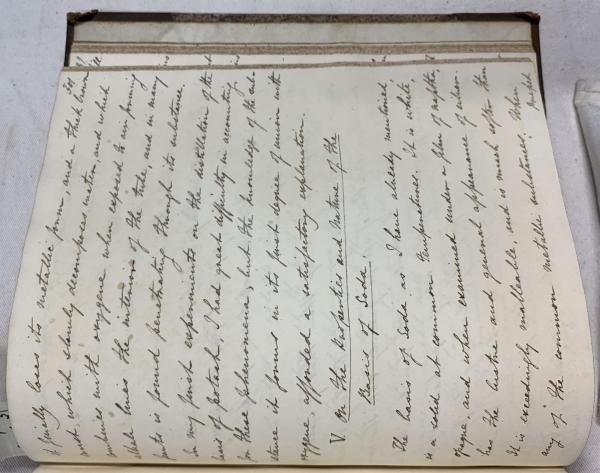 it finally loses its metallic form, and a thick brown
crust, which slowly decomposes water, and which
combines with oxygene when exposed to air forming
alkali lines the interior of the tube, and in many
parts is found penetrating through its substance.
In my first experiments on the distillation of the
basis of potash, I had great difficulty in accounting
for these phenomena; but the knowledge of the sub-
stance it forms in its first degree of union with
oxygene, afforded a satisfactory explanation.
V. On the Properties and Nature of the
Basis of Soda.
The basis of Soda as I have already mentioned
is a solid at common temperatures. It is white,
opaque, and when examined under a film of naphtha,
has the lustre and general appearance of silver.
It is exceedingly malleable, and is much softer than
any of the common metallic substances. When
pressed